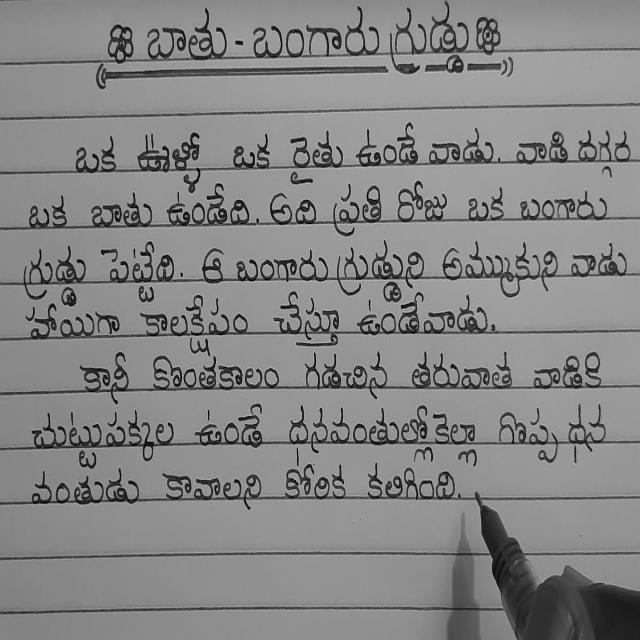 బాతు - బంగారు గ్రుడ్డు
ఒక ఊళ్ళో ఒక రైతు ఉండే వాడు. వాడి దగ్గర
ఒక బాతు ఉండేది. అది ప్రతి రోజు ఒక బంగారు
గ్రుడ్డు పెట్టేది. ఆ బంగారు గ్రుడ్డుని అమ్ముకుని వాడు
హాయిగా కాలక్షేపం చేస్తూ ఉండేవాడు.
కానీ కొంతకాలం గడచిన తరువాత వాడికి
చుట్టుపక్కల ఉండే ధనవంతుల్లోకెల్లా గొప్ప ధన
వంతుడు కావాలని కోరిక కలిగింది.